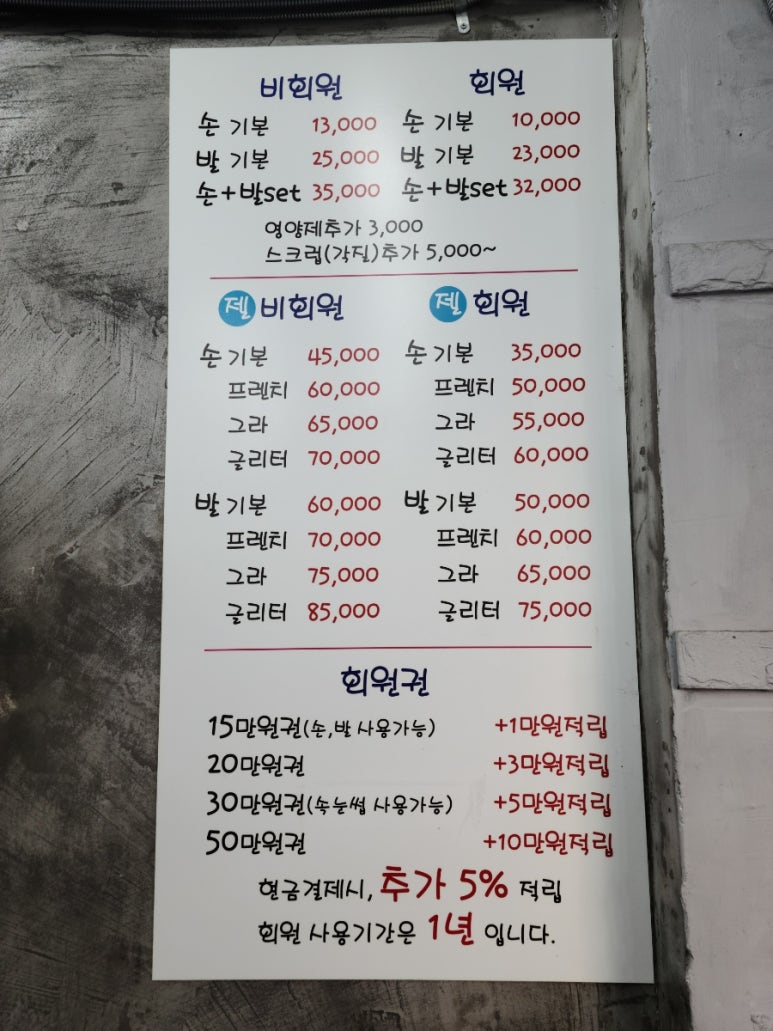 비회원 회원
손 기본 13,000 손 기본 10,000
발 기본 25,000 발 기본 23,000
손+발set 35,000 손+발set 32,000
영양제추가 3,000
스크럽(각질)추가 5,000~
젤 비회원 젤 회원
손 기본 45,000 손 기본 35,000
프렌치 60,000 프렌치 50,000
그라 65,000 그라 55,000
글리터 70,000 글리터 60,000
발 기본 60,000 발 기본 50,000
프렌치 70,000 프렌치 60,000
그라 75,000 그라 65,000
글리터 85,000 글리터 75,000
회원권
15만원권(손,발 사용가능) +1만원적립
20만원권 +3만원적립
30만원권(속눈썹 사용가능) +5만원적립
50만원권 +10만원적립
현금결제시, 추가 5% 적립
회원 사용기간은 1년 입니다.